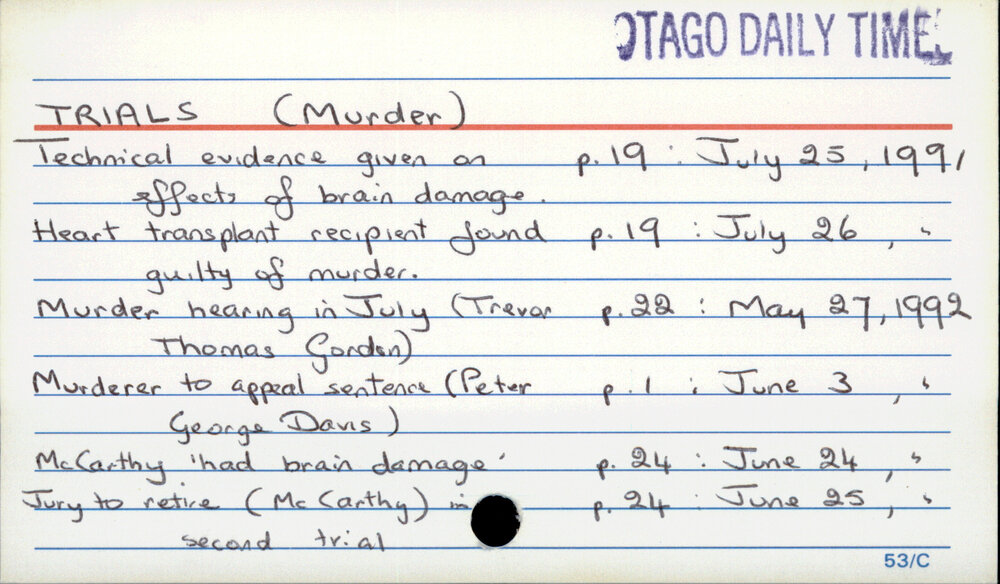 OTAGO DAILY TIMES
TRIALS (Murder)
Technical evidence given on p. 19 : July 25, 1991
effects of brain damage.
Heart transplant recipient found p. 19 : July 26, "
guilty of murder.
Murder hearing in July (Trevor p. 22 : May 27, 1992
Thomas Gordon)
Murderer to appeal sentence (Peter p. 1 : June 3, "
George Davis)
McCarthy 'had brain damage' p. 24 : June 24, "
Jury to retire (McCarthy) in p. 24 : June 25, "
second trial
53/C